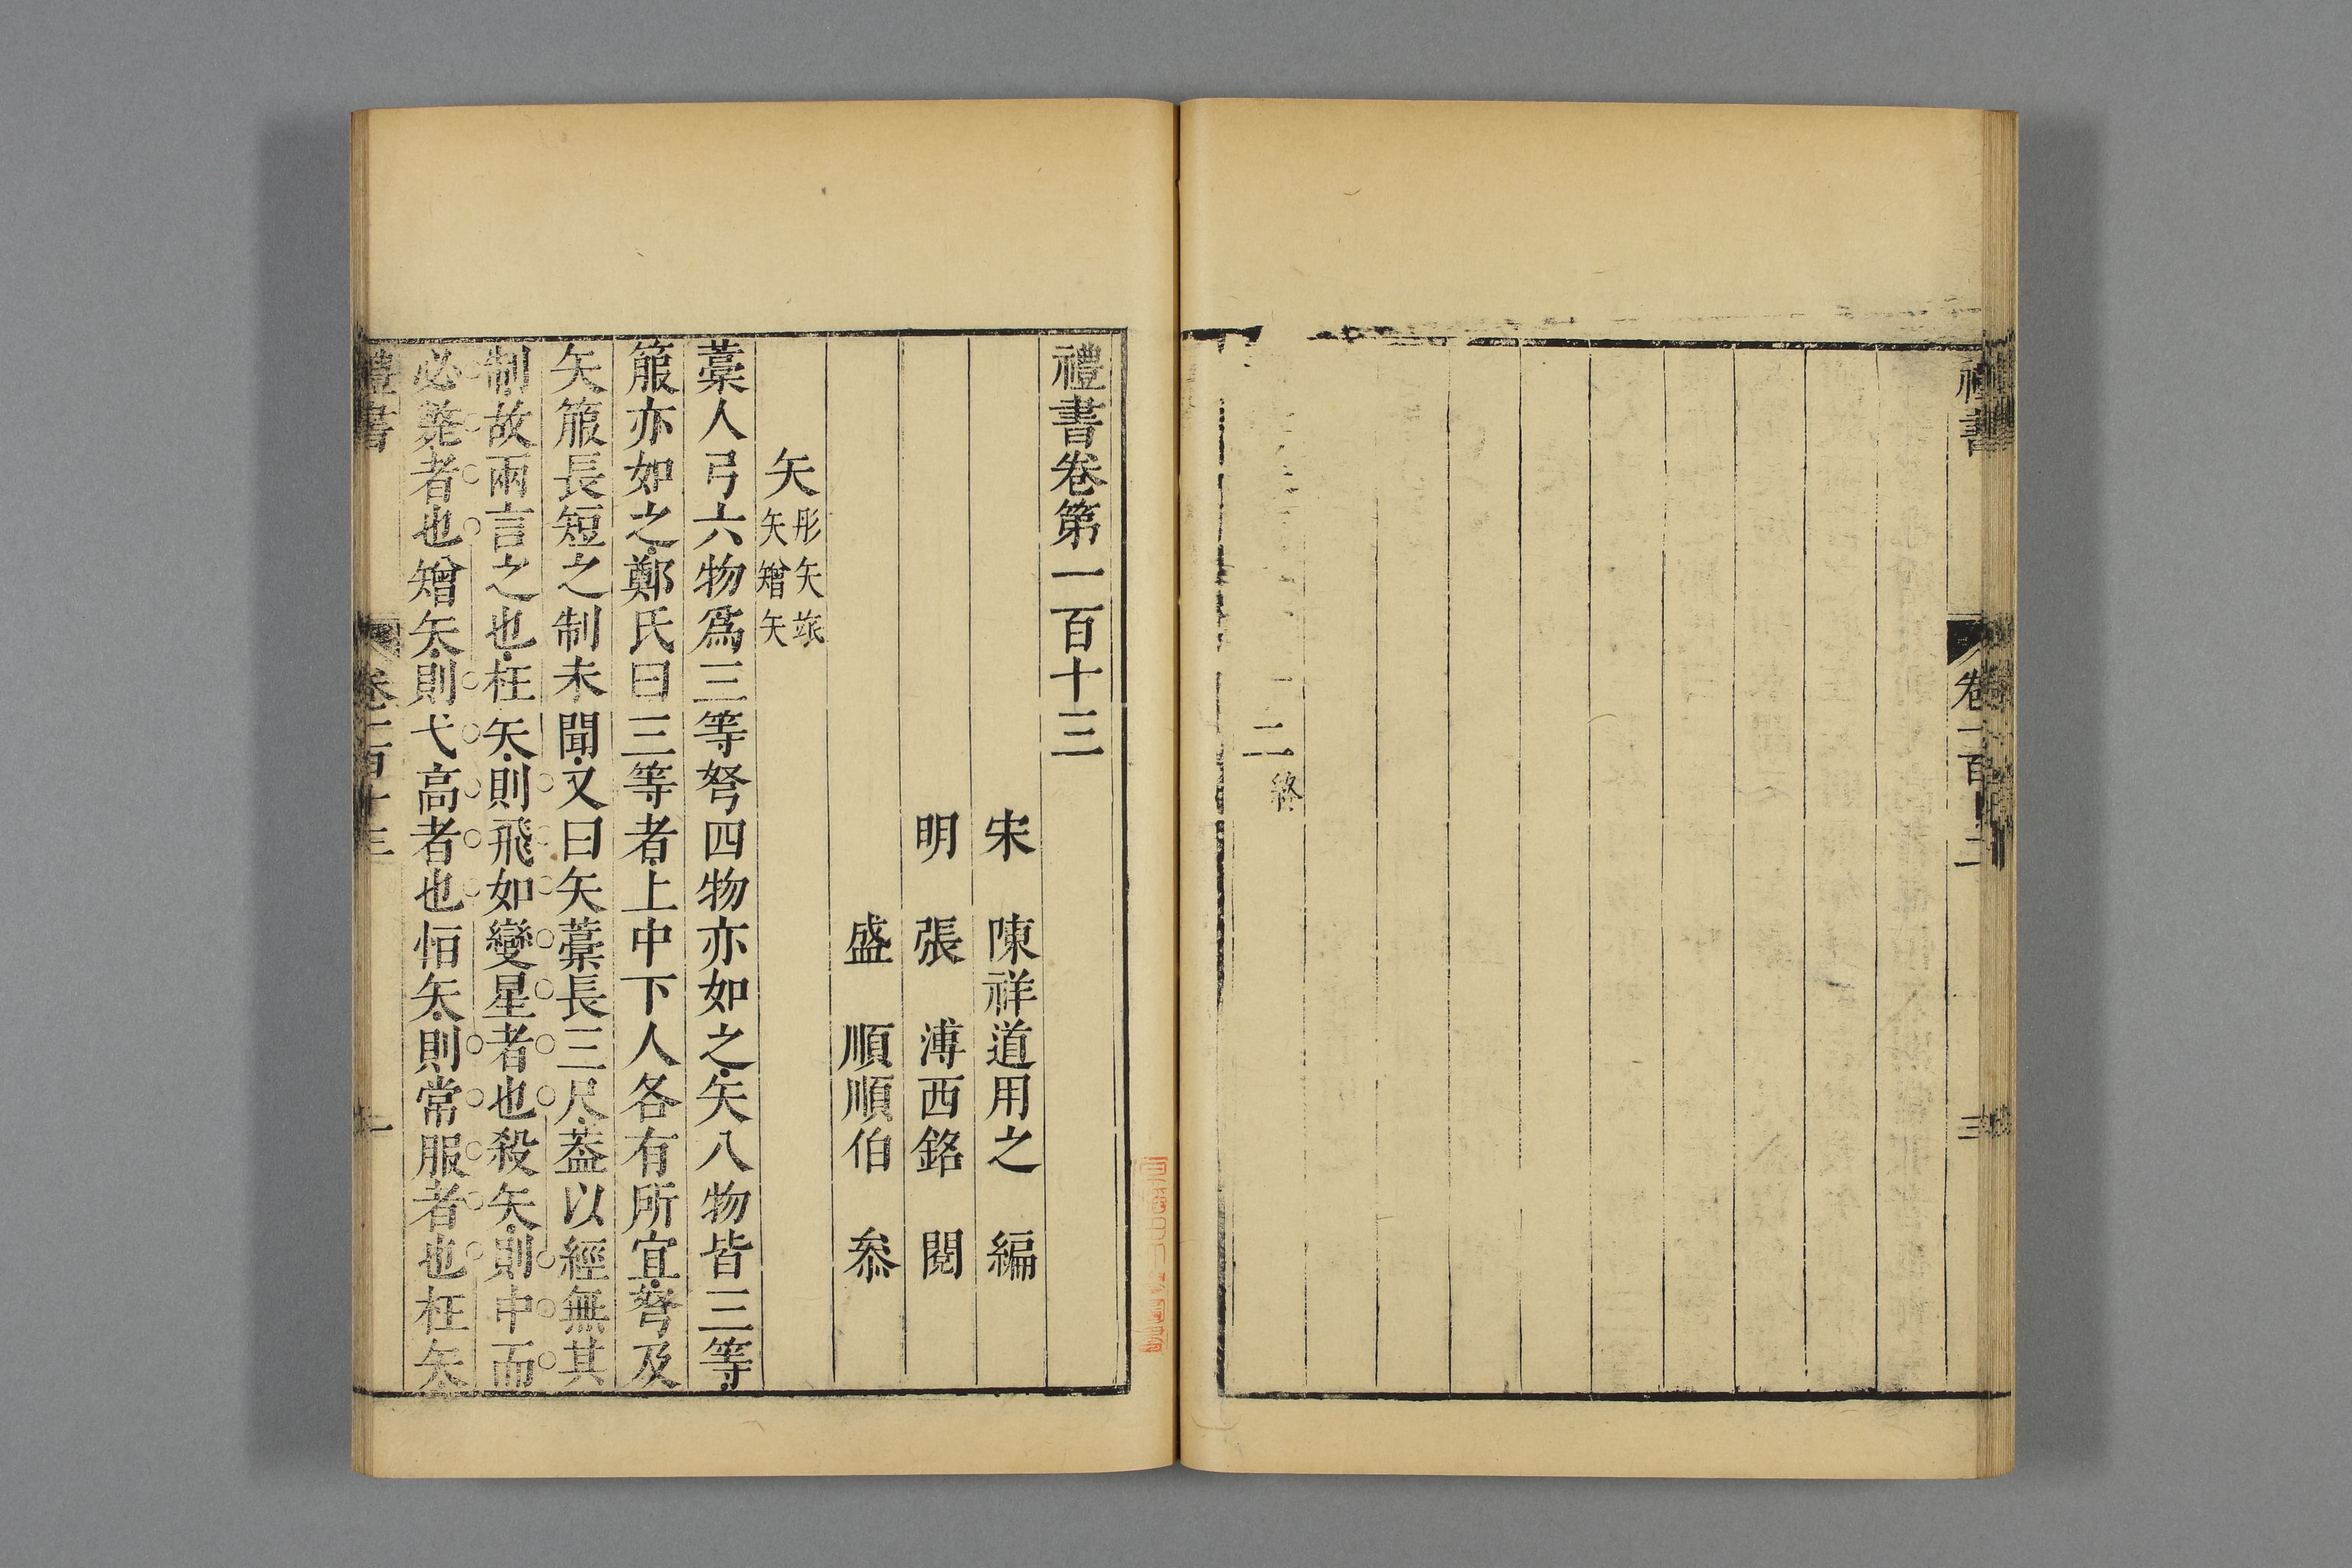 禮書
卷一百
三
二終
禮書卷第一百十三
宋　陳祥道用之　編
明　張　溥西銘　閱
盛　順順伯　叅
矢 彤矢玈矢矰矢
藁人弓六物爲三等弩四物亦如之矢八物皆三等
箙亦如之鄭氏曰三等者上中下人各有所宜弩及
矢箙長短之制未聞又曰矢藁長三尺葢以經無其
制故兩言之也枉矢則飛如變星者也殺矢則中而
必斃者也矰矢則弋高者也恒矢則常服者也枉矢
禮書
卷一百十三
一